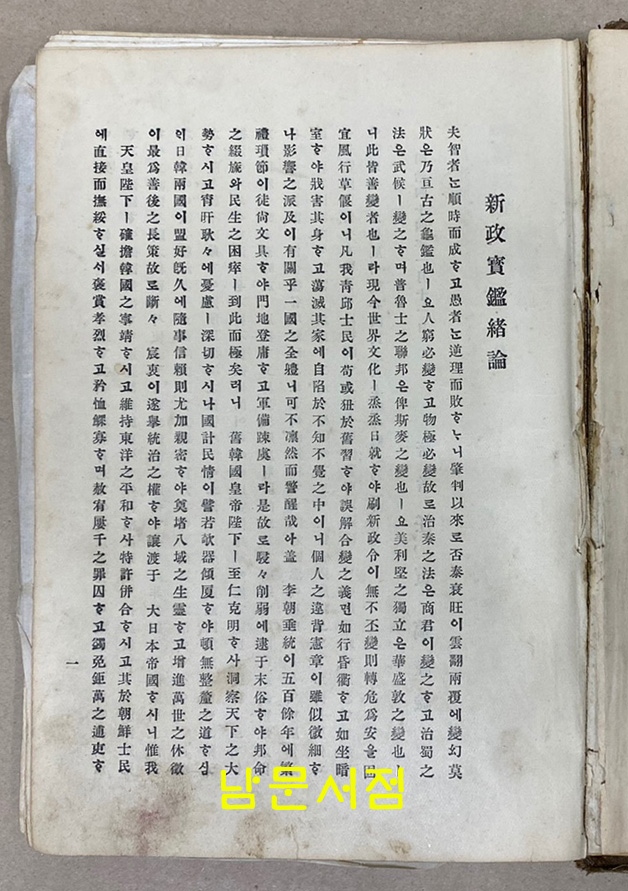 新政寶鑑緖論
夫智者ᄂᆞᆫ順時而成ᄒᆞ고愚者ᄂᆞᆫ逆理而敗ᄒᆞᄂᆞ니肇判以來로否泰衰旺이雲翻雨覆에變幻莫
狀은乃亘古之龜鑑也ㅣ요人窮必變ᄒᆞ고物極必變故로治秦之法은商君이變之ᄒᆞ고治蜀之
法은武候ㅣ變之ᄒᆞ며普魯士之聯邦은俾斯麥之變也ㅣ요美利堅之獨立은華盛敦之變也ㅣ
니此皆善變者也ㅣ라現今世界文化ㅣ烝烝日就ᄒᆞ야刷新政令이無不丕變則轉危爲安을
宜風行草偃이니凡我靑邱士民이苟或狃於舊習ᄒᆞ야誤解合變之義면如行昏衢ᄒᆞ고如坐暗
室ᄒᆞ야戕害其身ᄒᆞ고蕩滅其家에自陷於不知不覺之中이니個人之違背憲章이雖似微細ᄒᆞ
나影響之派及이有關乎一國之全體니可不凜然而警醒哉아盖 李朝垂統이五百餘年에繁
禮瑣節이徒尙文具ᄒᆞ야門地登庸ᄒᆞ고軍備踈虞ㅣ라是故로駸々削弱에逮于末俗ᄒᆞ야邦命
之綴旒와民生之困瘁ㅣ到此而極矣러니 舊韓國皇帝陛下ㅣ至仁克明ᄒᆞ사洞察天下之大
勢ᄒᆞ시고宵旰耿々에憂慮ㅣ深切ᄒᆞ시나國計民情이譬若欹器傾厦ᄒᆞ야頓無整釐之道ᄒᆞ심
이日韓兩國이盟好旣久에隨事信賴則尤加親密ᄒᆞ야奠堵八域之生靈ᄒᆞ고增進萬世之休徵
이最爲善後之長策故로斷々 宸衷이遂擧統治之權ᄒᆞ야讓渡于 大日本帝國ᄒᆞ시니惟我
天皇陛下ㅣ確擔韓國之事ᄒᆞ시고維持東洋之平和ᄒᆞ사特許併合ᄒᆞ시고其於朝鮮士民
에直接而撫綏ᄒᆞ실시褒賞孝烈ᄒᆞ고矜恤鰥寡ᄒᆞ며赦宥屢千之罪囚ᄒᆞ고蠲免鉅萬之逋吏ᄒᆞ
一
남문서점